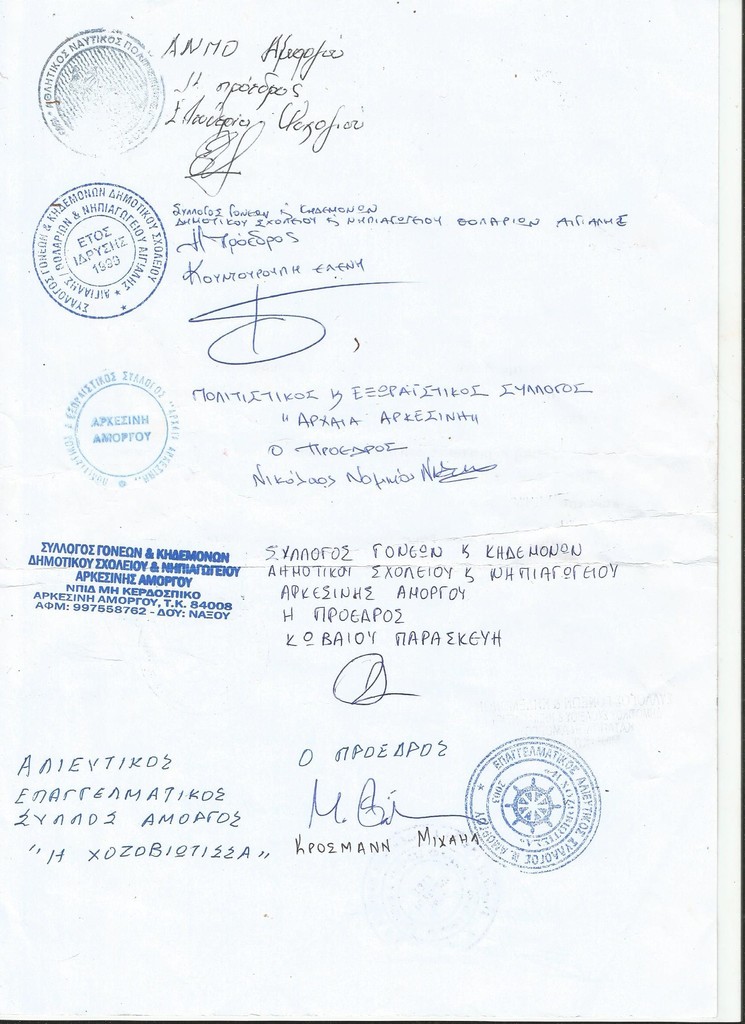 ΑΘΛΗΤΙΚΟΣ ΝΑΥΤΙΚΟΣ
ΑΝΜΟ Αμοργού
Η πρόεδρος
ΣΥΛΛΟΓΟΣ ΓΟΝΕΩΝ & ΚΗΔΕΜΟΝΩΝ ΔΗΜΟΤΙΚΟΥ ΣΧΟΛΕΙΟΥ
ΘΟΛΑΡΙΩΝ & ΝΗΠΙΑΓΩΓΕΙΟΥ ΑΙΓΙΑΛΗΣ
ΕΤΟΣ
ΙΔΡΥΣΗΣ
1993
ΣΥΛΛΟΓΟΣ ΓΟΝΕΩΝ & ΚΗΔΕΜΟΝΩΝ
ΔΗΜΟΤΙΚΟΥ ΣΧΟΛΕΙΟΥ & ΝΗΠΙΑΓΩΓΕΙΟΥ ΘΟΛΑΡΙΩΝ ΑΙΓΙΑΛΗΣ
Η Πρόεδρος
ΕΛΕΝΗ
ΕΞΩΡΑΙΣΤΙΚΟΣ ΣΥΛΛΟΓΟΣ
ΑΡΚΕΣΙΝΗ
ΑΜΟΡΓΟΥ
ΠΟΛΙΤΙΣΤΙΚΟΣ & ΕΞΩΡΑΪΣΤΙΚΟΣ ΣΥΛΛΟΓΟΣ
"ΑΡΧΑΙΑ ΑΡΚΕΣΙΝΗ"
Ο ΠΡΟΕΔΡΟΣ
Νικόλαος Νομικός
ΣΥΛΛΟΓΟΣ ΓΟΝΕΩΝ & ΚΗΔΕΜΟΝΩΝ
ΔΗΜΟΤΙΚΟΥ ΣΧΟΛΕΙΟΥ & ΝΗΠΙΑΓΩΓΕΙΟΥ
ΑΡΚΕΣΙΝΗΣ ΑΜΟΡΓΟΥ
ΝΠΙΔ ΜΗ ΚΕΡΔΟΣΠΙΚΟ
ΑΡΚΕΣΙΝΗ ΑΜΟΡΓΟΥ, Τ.Κ. 84008
ΑΦΜ: 997558762 - ΔΟΥ: ΝΑΞΟΥ
ΣΥΛΛΟΓΟΣ ΓΟΝΕΩΝ & ΚΗΔΕΜΟΝΩΝ
ΔΗΜΟΤΙΚΟΥ ΣΧΟΛΕΙΟΥ & ΝΗΠΙΑΓΩΓΕΙΟΥ
ΑΡΚΕΣΙΝΗΣ ΑΜΟΡΓΟΥ
Η ΠΡΟΕΔΡΟΣ
ΚΩΒΑΙΟΥ ΠΑΡΑΣΚΕΥΗ
ΑΛΙΕΥΤΙΚΟΣ
ΕΠΑΓΓΕΛΜΑΤΙΚΟΣ
ΣΥΛΛΟΣ ΑΜΟΡΓΟΣ
"Η ΧΟΖΟΒΙΩΤΙΣΣΑ"
Ο ΠΡΟΕΔΡΟΣ
ΚΡΟΣΜΑΝΝ ΜΙΧΑΗΛ
ΕΠΑΓΓΕΛΜΑΤΙΚΟΣ ΑΛΙΕΥΤΙΚΟΣ ΣΥΛΛΟΓΟΣ Ν. ΑΜΟΡΓΟΥ
2003